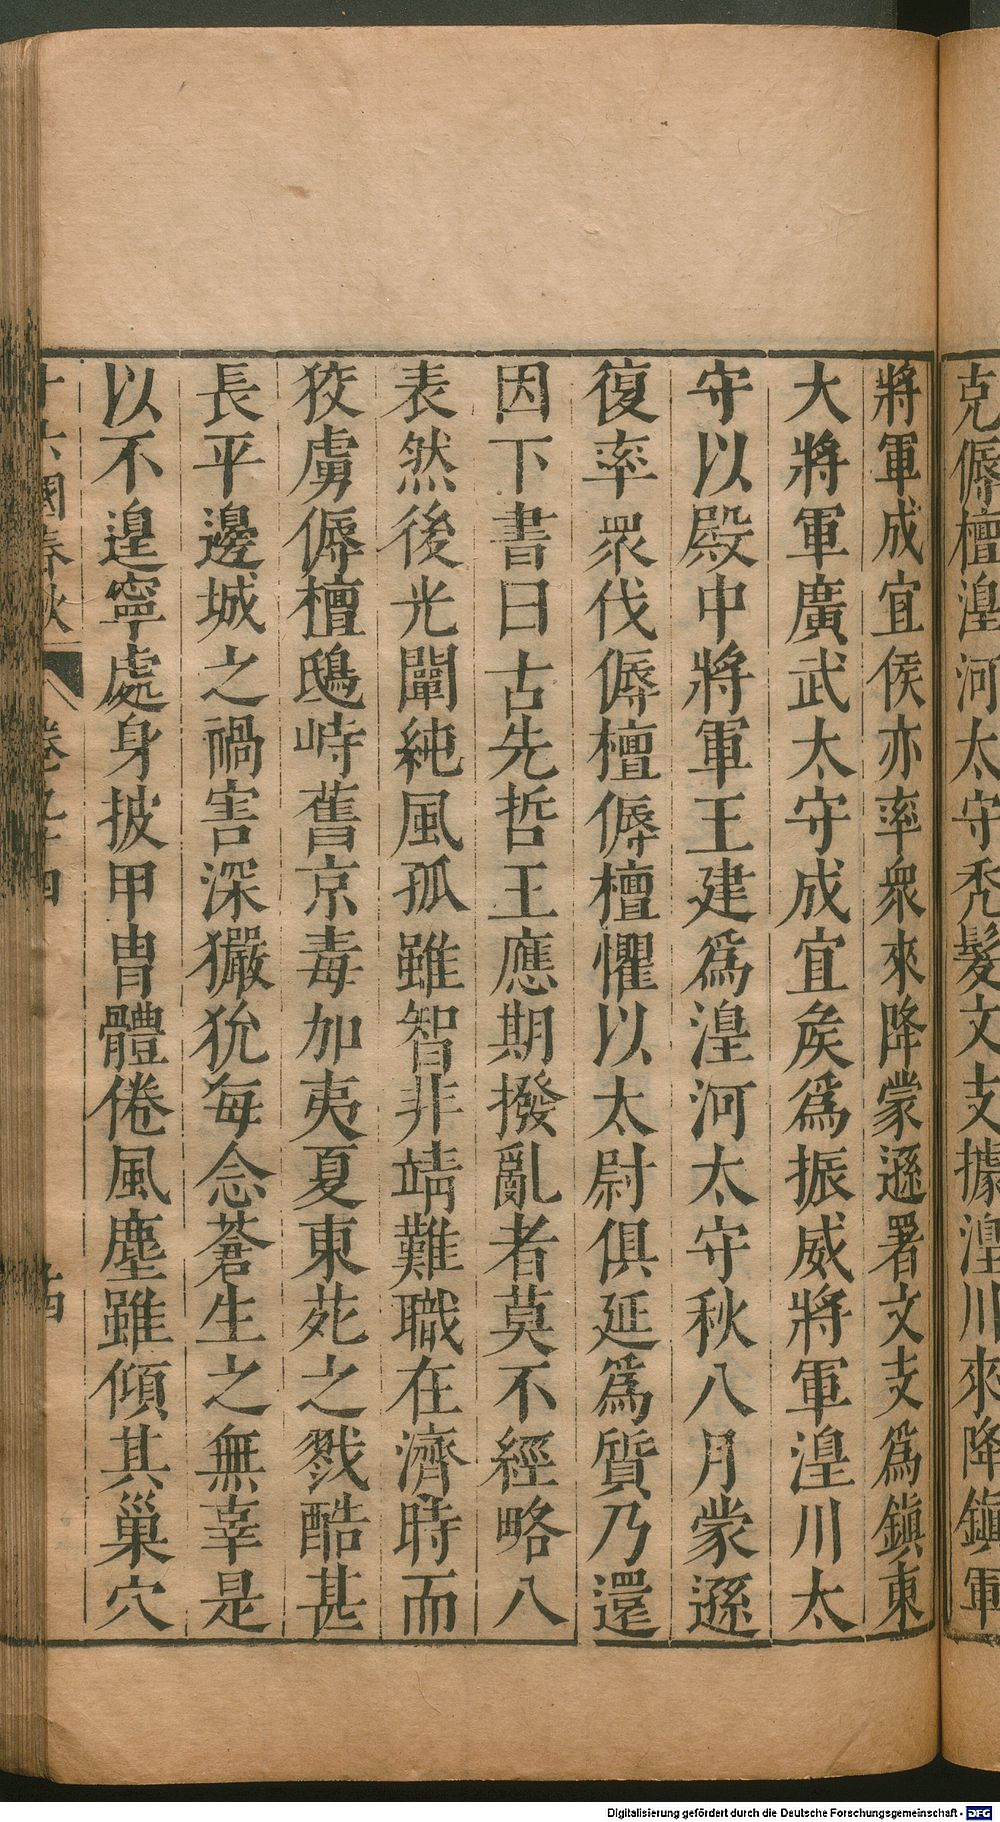 克傉檀湟河太守禿髮文支據湟川來降鎭軍
將軍成宜侯亦率衆來降蒙遜署文支爲鎭東
大將軍廣武太守成宜矦爲振威將軍湟川太
守以殿中將軍王建爲湟河太守秋八月蒙遜
復率眾伐傉檀傉檀懼以太尉俱延爲質乃還
因下書曰古先哲王應期撥亂者莫不經略八
表然後光闡純風孤雖智非靖難職在濟時而
狡虜傉檀鴟峙舊京毒加夷夏東苑之戮酷甚
長平邊城之禍害深玁狁每念蒼生之無辜是
以不遑寧處身披甲冑體倦風塵雖傾其巢穴
十六國春秋 卷九十四